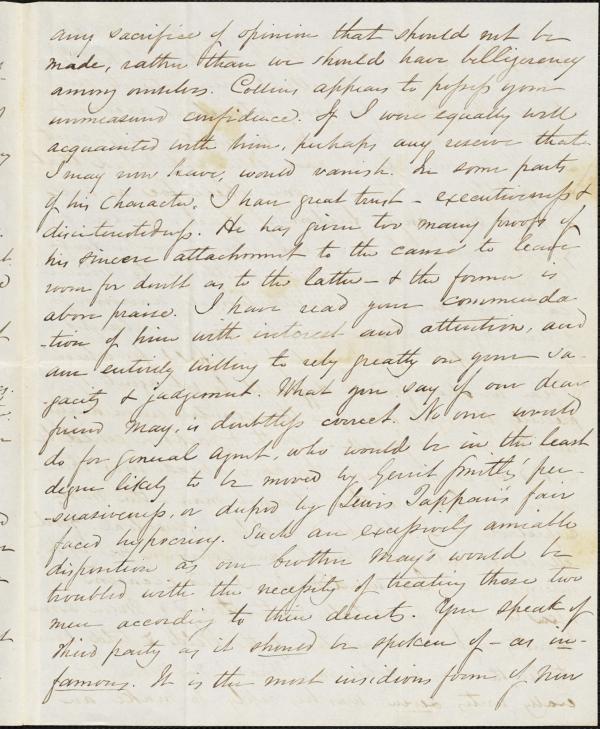 any sacrifice of opinion that should not be
made, rather than we should have billigerency
among ourselves. Collins appears to possess your
unmeasured confidence. If I were equally well
acquainted with him, perhaps any reserve that
I may now have, would vanish. In some parts
of his Character, I have great trust - executiveness &
disinterestedness. He has given too many proofs of
his sincere attachment to the cause to leave
room for doubt as to the latter - & the former is
above praise. I have read your commenda-
-tion of him with interest and attention, and
am entirely willing to rely greatly on your sa-
-gacity & judgement. What you say of our dear
friend May, is doubtless correct. No one would
do for general agent, who would be in the least
degree likely to be moved by Gerrit Smith's per-
-suasiveness, or duped by Lewis Tappan's fair
faced hypocrisy. Such an excessively amiable
disposition as our brother May's would be
troubled with the necessity of treating those two
men according to their deserts. You speak of
Third party as it should be spoken of - as in-
famous. It is the most insidious form of New